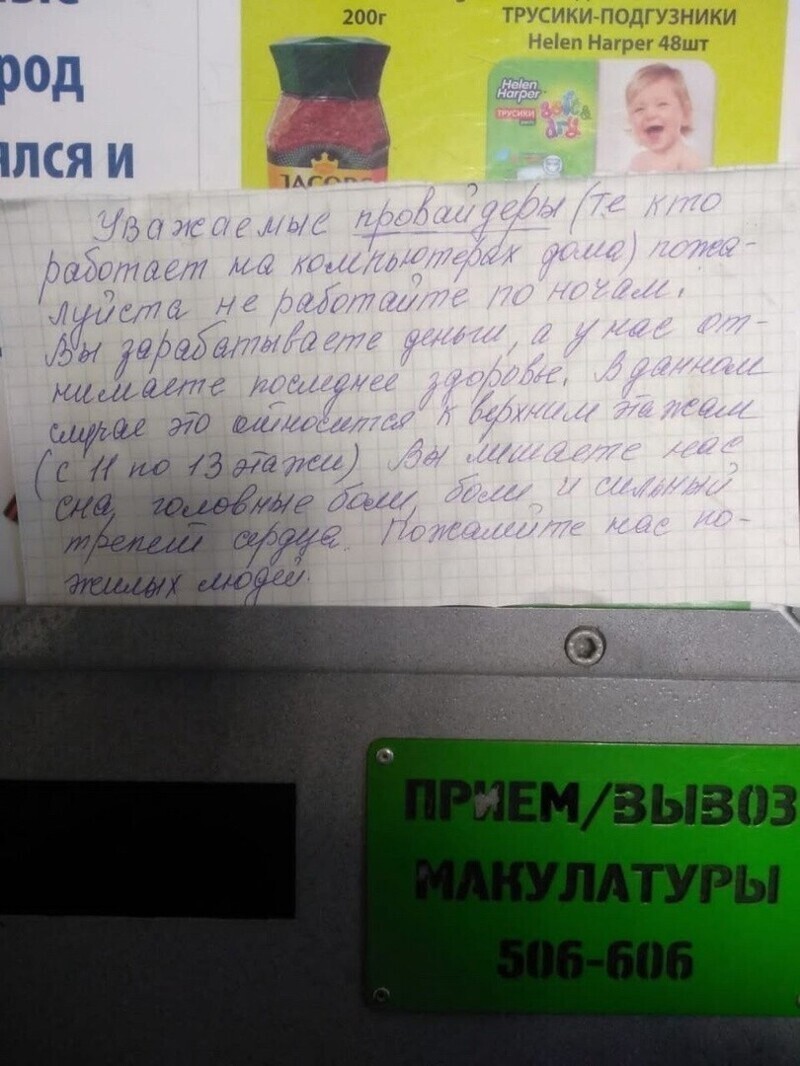 род
ялся и
200г
ТРУСИКИ-ПОДГУЗНИКИ
Helen Harper 48шт
Helen
Harper
ТРУСИКИ
soft&
dry
JACOBS
Уважаемые провайдеры (те кто
работает на компьютерах дома) пожа-
луйста не работайте по ночам.
Вы зарабатываете деньги, а у нас от-
нимаете последнее здоровье. В данном
случае это относится к верхним этажам
(с 11 по 13 этажи) Вы лишаете нас
сна, головные боли, боли и сильный
трепет сердца. Пожалейте нас по-
жилых людей.
ПРИЕМ/ВЫВОЗ
МАКУЛАТУРЫ
506-606